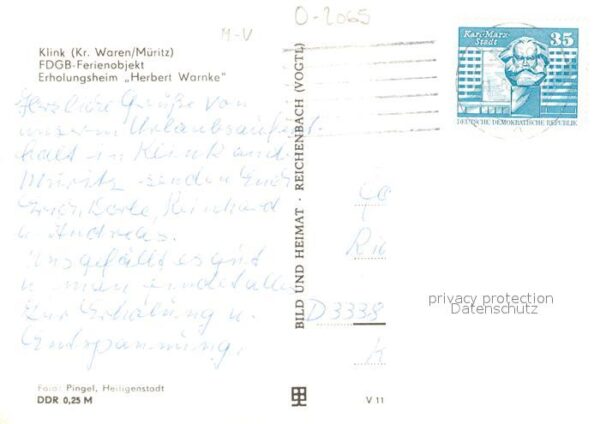 M-V
O-2065
Klink (Kr. Waren/Müritz)
FDGB-Ferienobjekt
Erholungsheim „Herbert Warnke"
Herzliche Grüße von
unserem Urlaubsaufent-
halt in Klink an d.
Müritz senden Euch
Dorle, Reinhard
u. Andreas.
Uns gefällt es gut
u. man findet alles
zur Erholung u.
Entspannung.
Foto: Pingel, Heiligenstadt
DDR 0,25 M
BILD UND HEIMAT · REICHENBACH (VOGTL)
V 11
Karl-Marx-
Stadt
35
DEUTSCHE DEMOKRATISCHE REPUBLIK
D 3338
privacy protection
Datenschutz